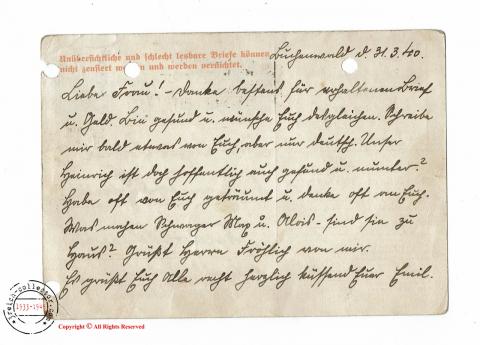 Unübersichtliche und schlecht lesbare Briefe können
nicht zensiert werden und werden vernichtet.
Buchenwald d. 31.3.40.
Liebe Frau! – Danke bestens für erhaltenen Brief
u. Geld. Bin gesund u. wünsche Euch desgleichen. Schreibe
mir bald etwas von Euch, aber nur deutsch. Unser
Heinrich ist doch hoffentlich auch gesund u. munter?
Habe oft von Euch geträumt u. denke oft an Euch.
Was machen Schwager Max u. Alois – sind sie zu
Haus? Grüßt Herrn Fröhlich von mir.
Es grüßt Euch Alle recht herzlich küssend Euer Emil.
3reich-collector.com
Copyright © All Rights Reserved